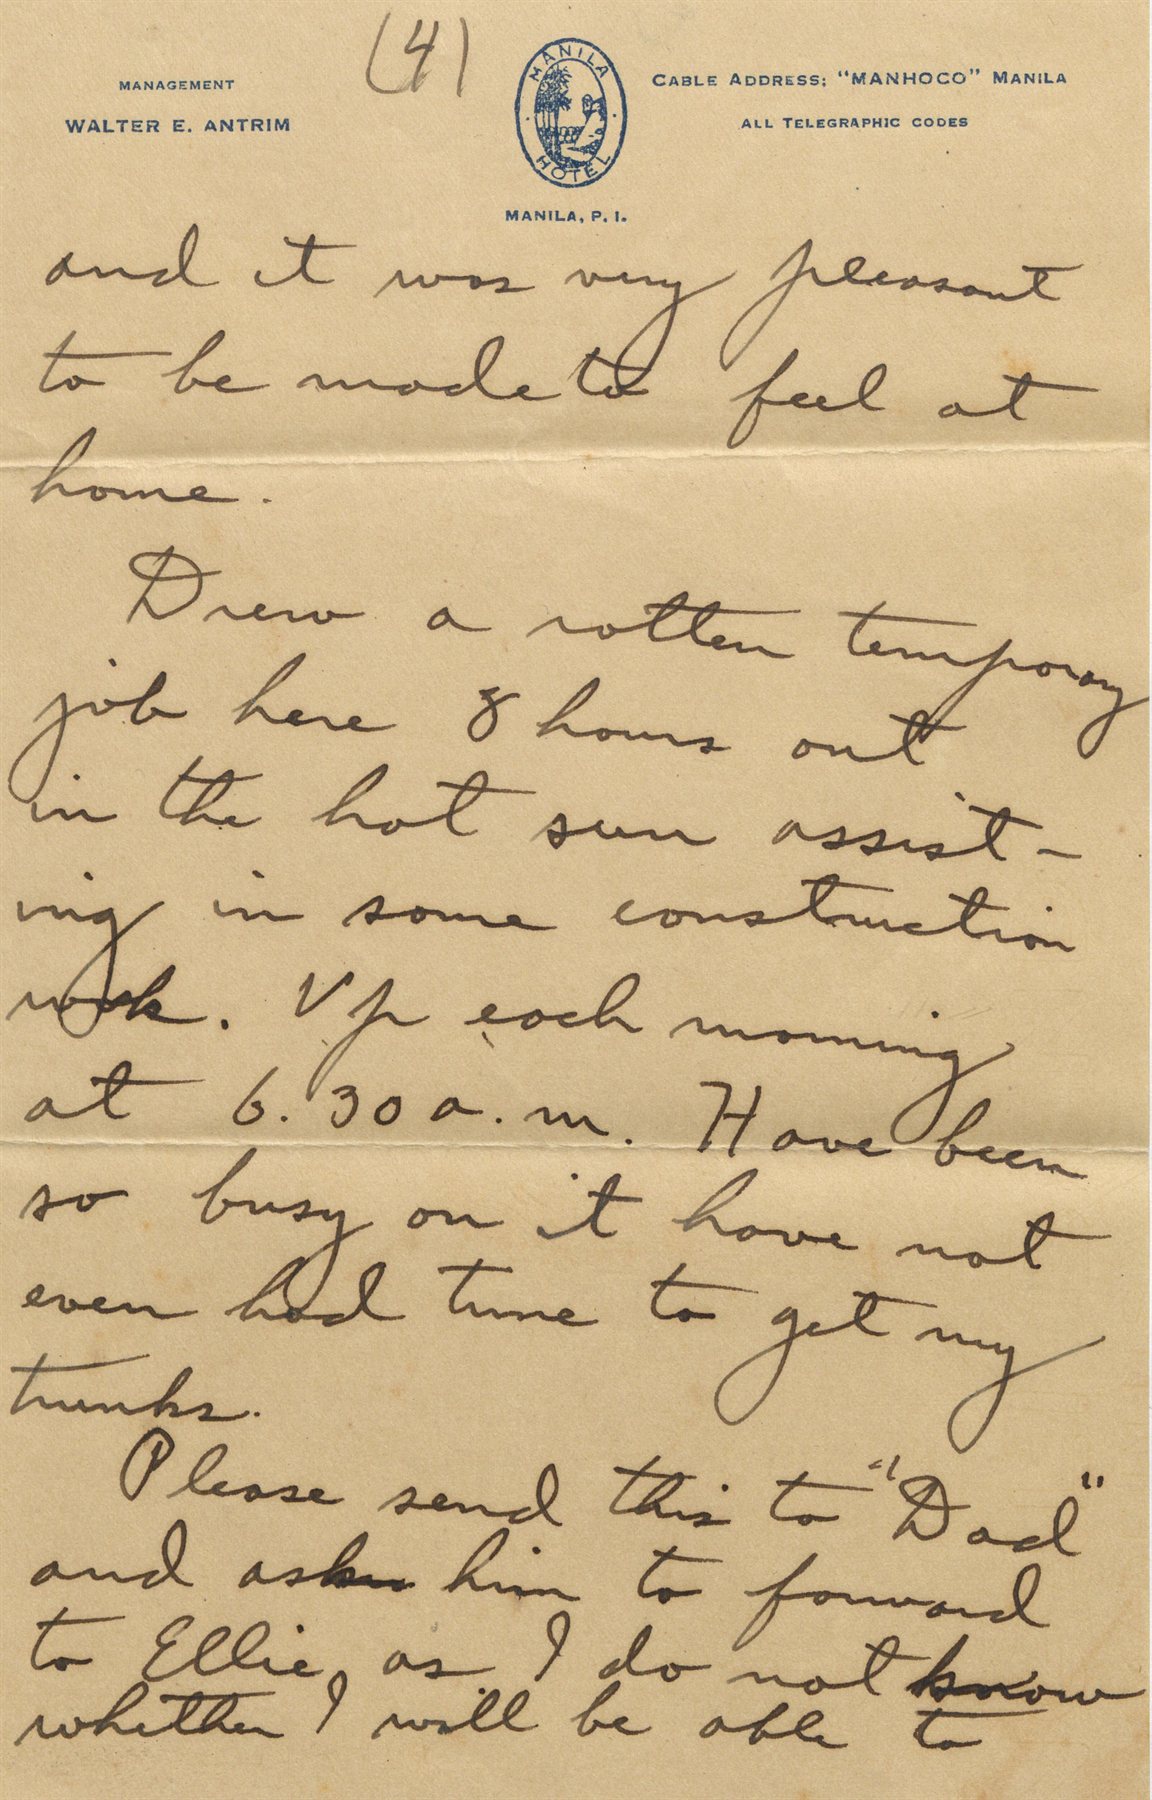 (4)
MANAGEMENT
WALTER E. ANTRIM
MANILA
HOTEL
CABLE ADDRESS: "MANHOCO" MANILA
ALL TELEGRAPHIC CODES
MANILA, P. I.
and it was very pleasant
to be made to feel at
home.
Drew a rotten temporary
job here 8 hours out
in the hot sun assist-
ing in some construction
work. Up each morning
at 6.30 a.m. Have been
so busy on it have not
even had time to get my
trunks.
Please send this to "Dad"
and ask him to forward
to Ellie, as I do not know
whether I will be able to